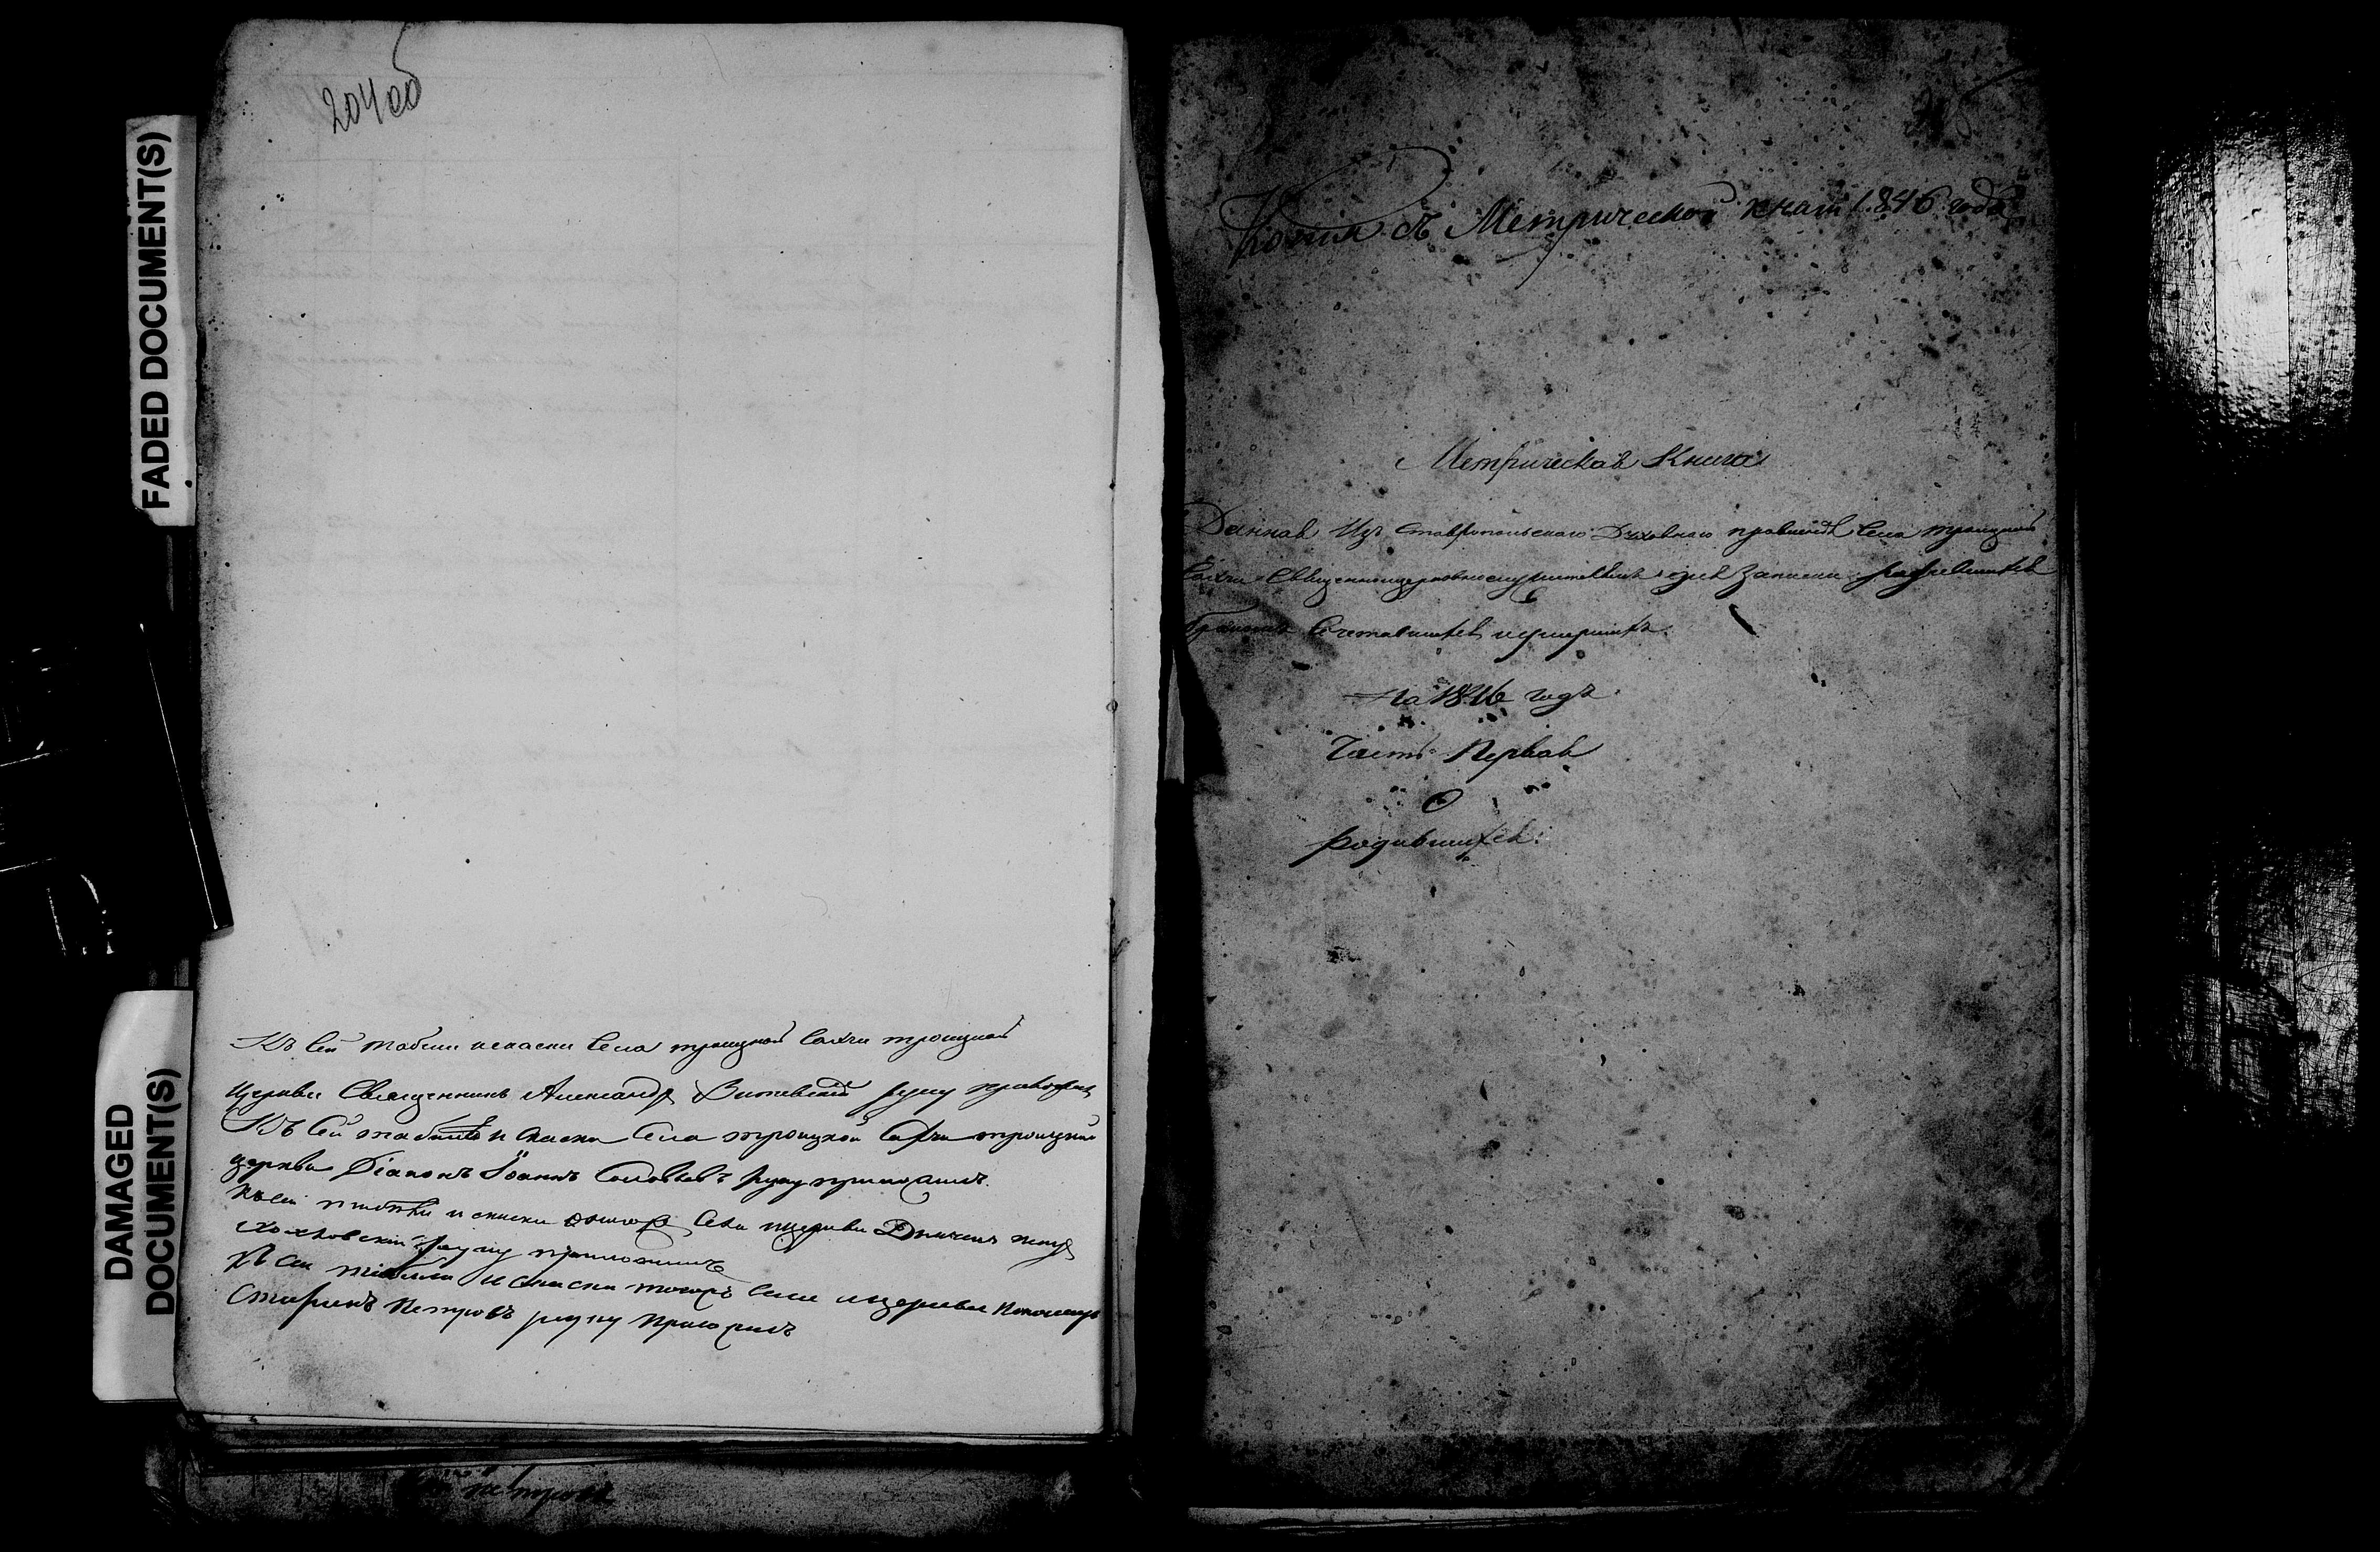 FADED DOCUMENT(S)
DAMAGED
DOCUMENT(S)
204об
Къ сей табели и скаски села троицкой Сахчи троицкой
церкви Священникъ Александръ Витевскій руку приложилъ
Къ сей табели и скаски села троицкой Сахчи троицкой
церкви Діаконъ Іоаннъ Соловьевъ руку приложилъ.
Къ сей и скаски села и церкви Дьячекъ
руку приложилъ
Къ сей табели и скаски тогожъ села и церкви Пономарь
Петровъ руку приложилъ
205
Копія съ Метрической книги 1846 года
Метрическая Книга
Данная Изъ Ставропольскаго Духовнаго правленія Села троицкой
Сахчи Священноцерковнослужителямъ для записки родившихся
бракомъ сочетавшихся и умершихъ.
На 1846 годъ.
Часть Первая
О
родившихся.